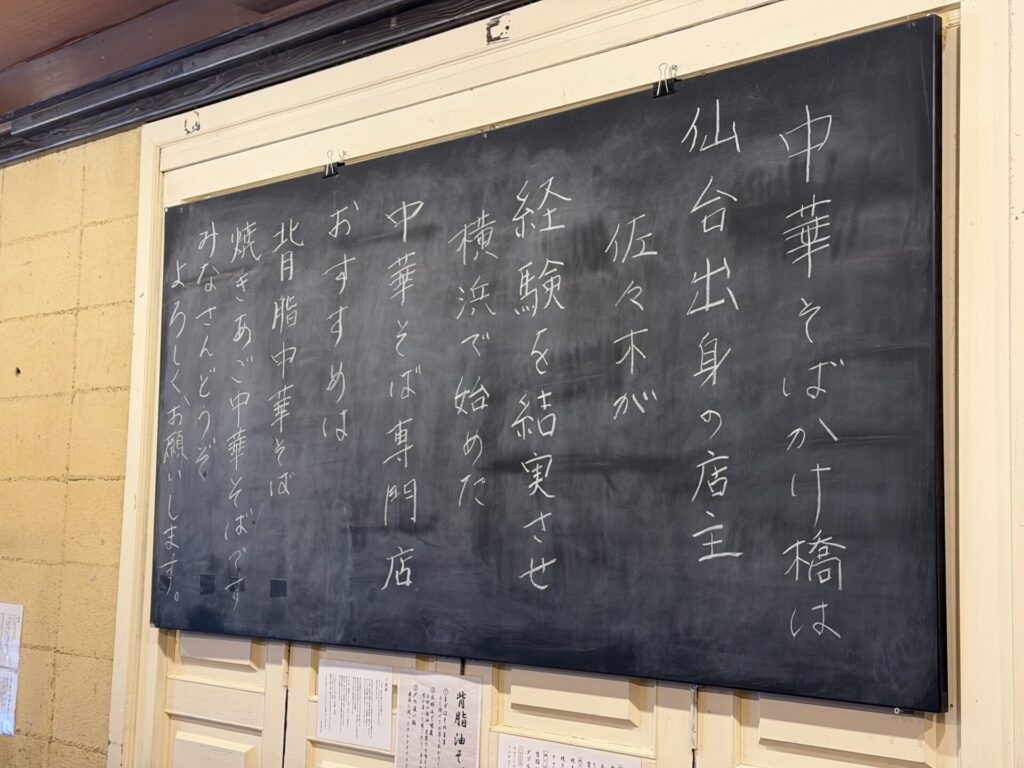 中華そばかけ橋は
仙台出身の店主
佐々木が
経験を結実させ
横浜で始めた
中華そば専門店
おすすめは
背脂中華そば
焼きあご中華そばです
みなさんどうぞ
よろしくお願いします。
背脂油そ